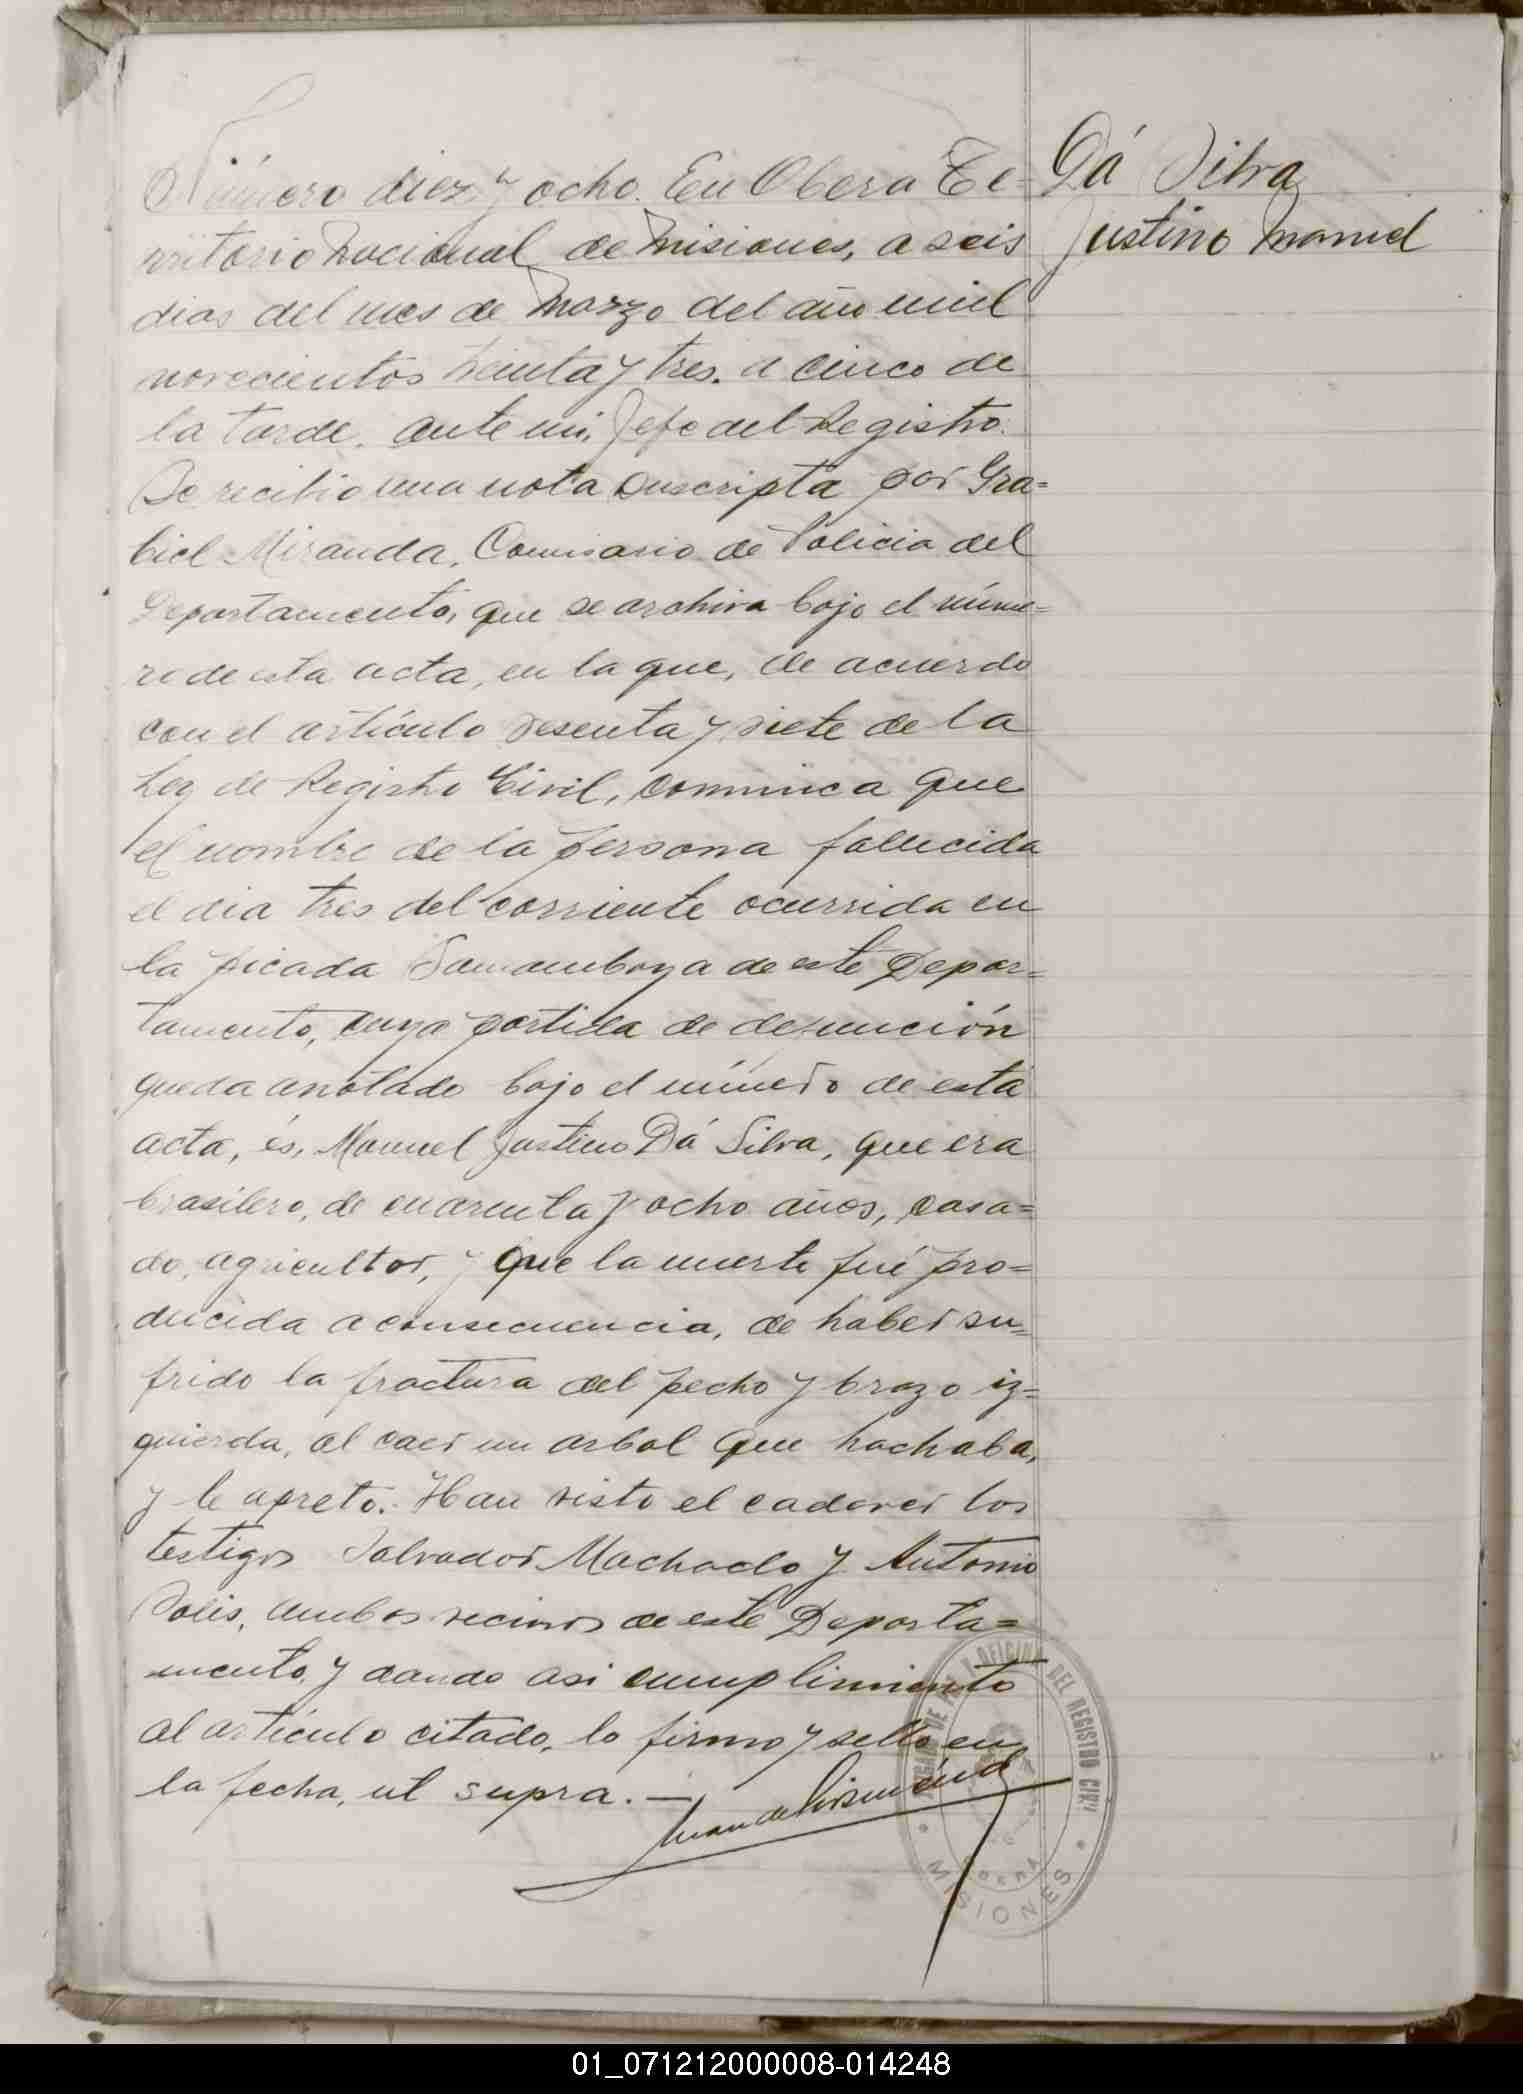 Número diez y ocho. En Obera Te-
rritorio Nacional de Misiones, a seis
dias del mes de Marzo del año mil
novecientos treinta y tres. a cinco de
la tarde. ante mi, Jefe del Registro.
Se recibio una nota suscripta por Gra=
biel Miranda, Comisario de Policia del
Departamento, que se archiva bajo el núme=
ro de esta acta, en la que, de acuerdo
con el artículo sesenta y siete de la
Ley de Registro Civil, comunica que
el nombre de la persona fallecida
el dia tres del corriente ocurrida en
la picada Samambaya de este Depar=
tamento, cuya partida de defunción
queda anotado bajo el número de esta
acta, és, Manuel Justino Dá Silva, que era
brasilero, de cuarenta y ocho años, casa=
do, agricultor, y que la muerte fué pro=
ducida a consecuencia, de haber su=
frido la fractura del pecho y brazo iz=
quierda, al caer un arbol que hachaba,
y le apretó. Han visto el cadaver los
testigos Salvador Machado y Antonio
Solis, ambos vecinos de este Departa=
mento, y dando asi cumplimiento
al artículo citado, lo firmo y sello en
la fecha, ut supra.—
Dá Silva
Justino Manuel
OFICINA DEL REGISTRO CIVIL
OBERA
MISIONES
01_071212000008-014248